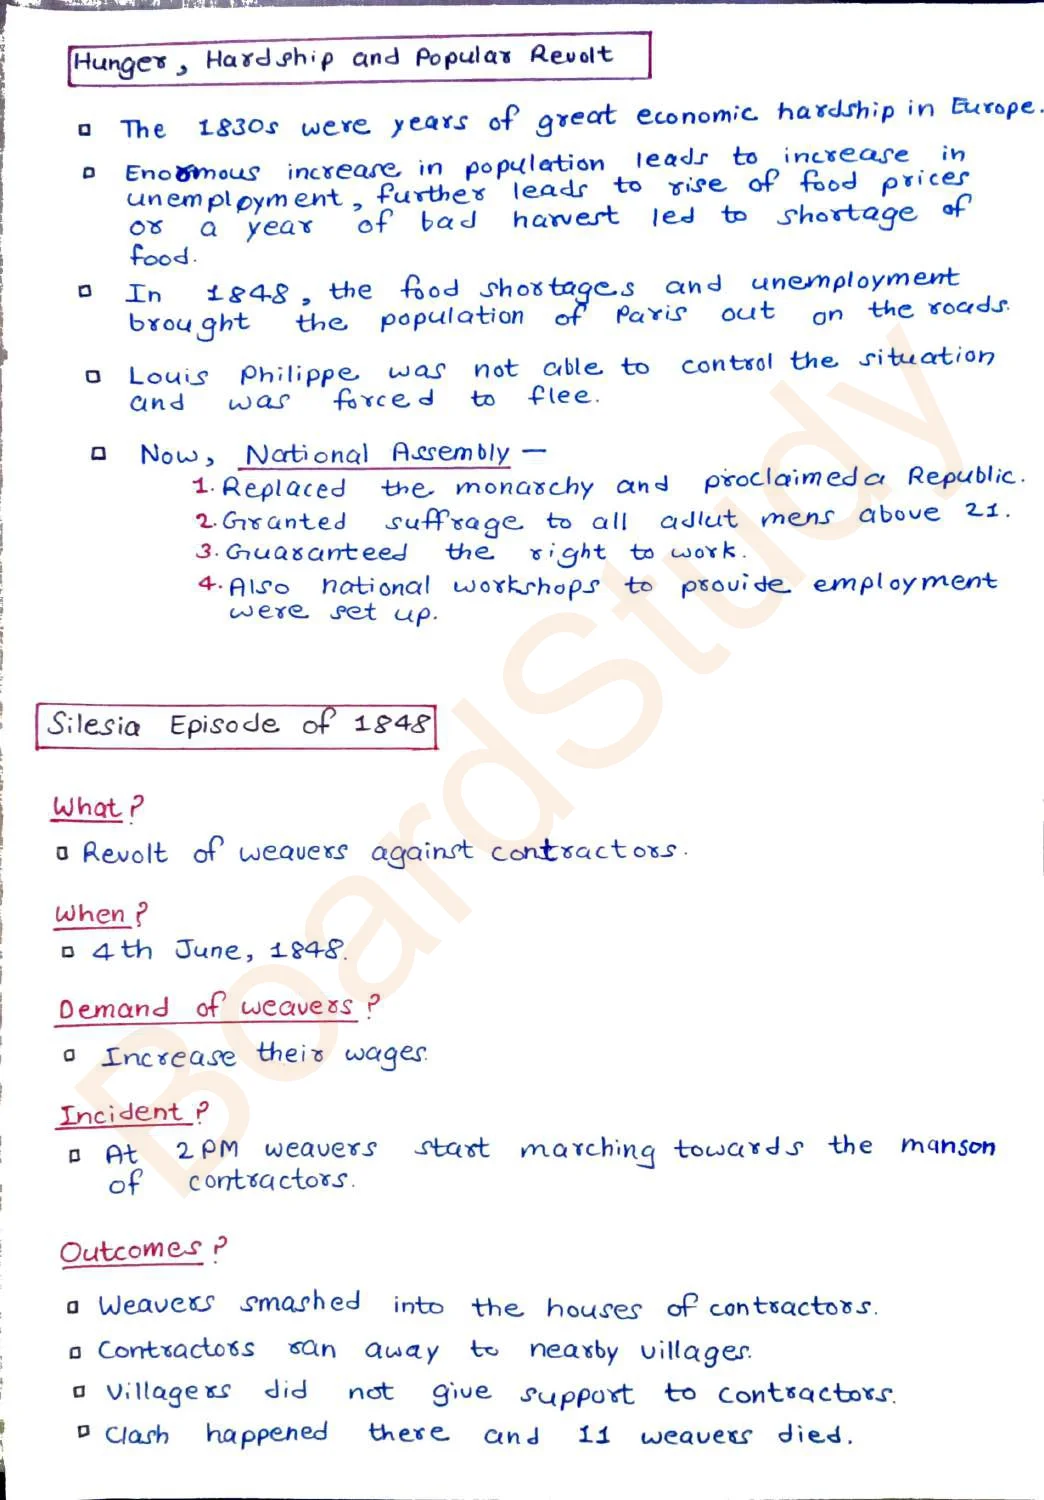 Hunger, Hardship and Popular Revolt
The 1830s were years of great economic hardship in Europe.
Enormous increase in population leads to increase in
unemployment, further leads to rise of food prices
or a year of bad harvest led to shortage of
food.
In 1848, the food shortages and unemployment
brought the population of Paris out on the roads.
Louis Philippe was not able to control the situation
and was forced to flee.
Now, National Assembly —
1. Replaced the monarchy and proclaimed a Republic.
2. Granted suffrage to all adlut mens above 21.
3. Guaranteed the right to work.
4. Also national workshops to provide employment
were set up.
Silesia Episode of 1848
What?
Revolt of weavers against contractors.
When?
4th June, 1848.
Demand of weavers?
Increase their wages.
Incident?
At 2 PM weavers start marching towards the manson
of contractors.
Outcomes?
Weavers smashed into the houses of contractors.
Contractors ran away to nearby villages.
Villagers did not give support to contractors.
Clash happened there and 11 weavers died.
BoardStudy